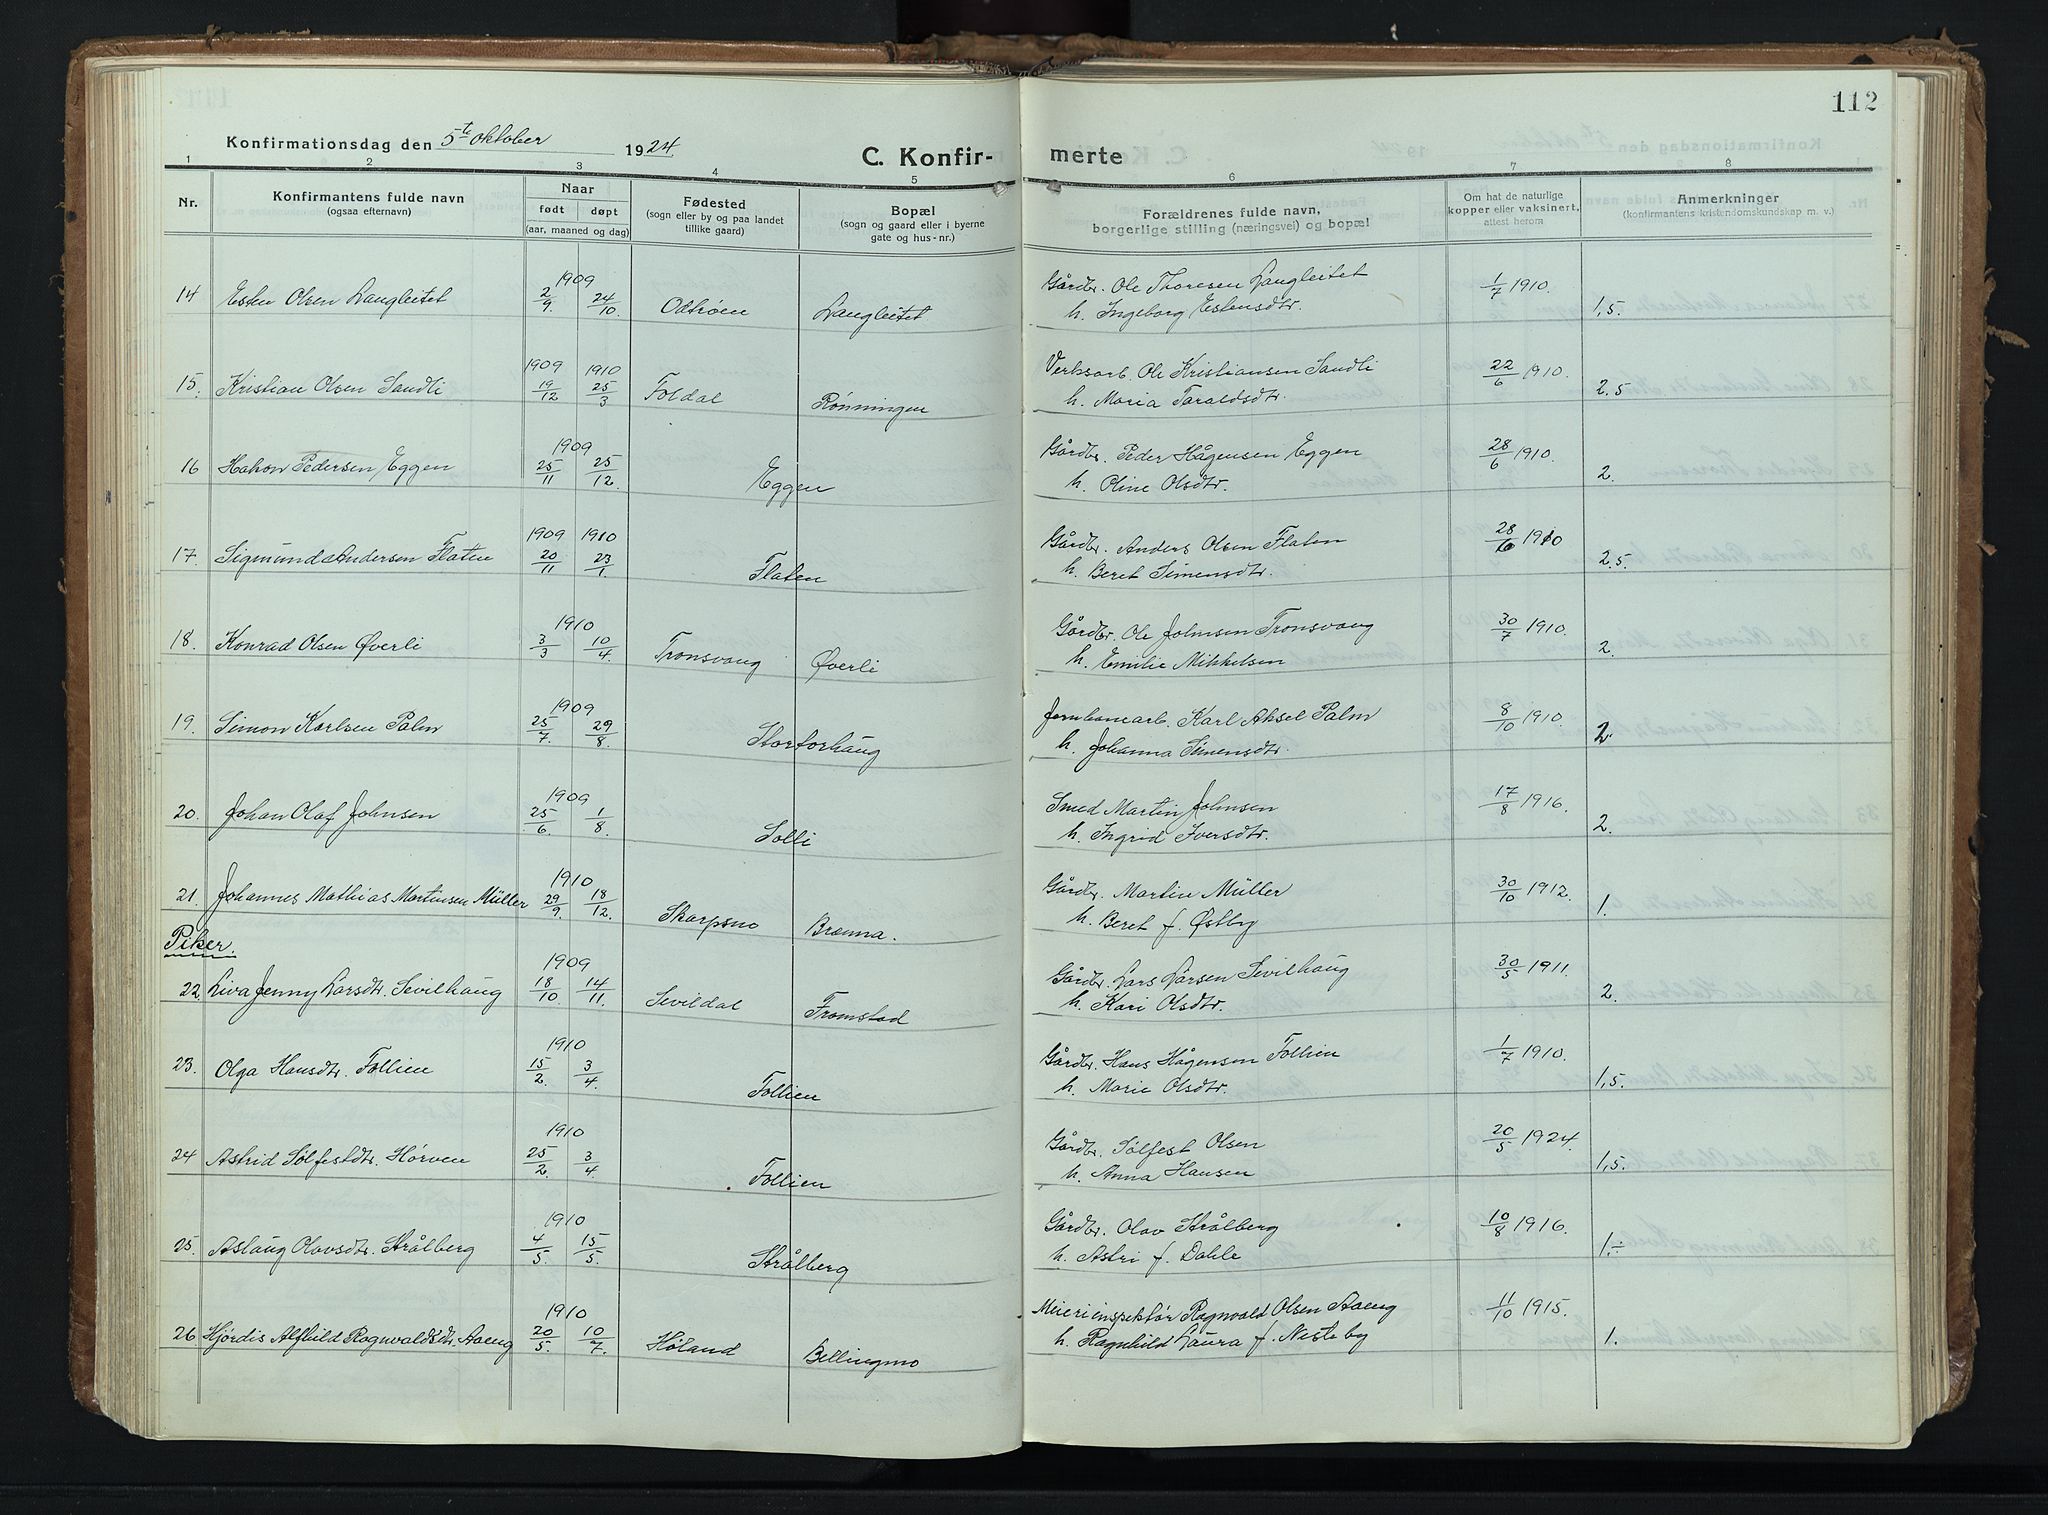 112
Konfirmationsdag den 5te Oktober 1924
C. Konfir- merte
1 2 3 4 5 6 7 8
Nr.
Konfirmantens fulde navn
(ogsaa efternavn)
Naar
født døpt
(aar, maaned og dag)
Fødested
(sogn eller by og paa landet
tillike gaard)
Bopæl
(sogn og gaard eller i byerne
gate og hus-nr.)
Forældrenes fulde navn,
borgerlige stilling (næringsvei) og bopæl
Om hat de naturlige
kopper eller vaksinert,
attest herom
Anmerkninger
(konfirmantens kristendomskundskap m. v.)
14 Esten Olsen Langleitet 1909 2/9 24/10 Langleitet Gårdbr. Ole Thoresen Langleitet 1/7 1910. 1,5.
h. Ingeborg Estensdtr.
15. Kristian Olsen Sandli 1909 19/12 1910 25/3 Foldal Rønningen Verksarb. Ole Kristiansen Sandli 22/6 1910. 2.5
h. Maria Taraldsdtr.
16 Hakon Pedersen Eggen 1909 25/11 25/12. Eggen Gårdbr. Peder Hågensen Eggen 28/6 1910. 2.
h. Oline Olsdtr.
17. Sigmund Andersen Flaten 1909 20/11 1910 23/1. Flaten Gårdbr. Anders Olsen Flaten 28/6 1910 2.5.
h. Beret Simensdtr.
18. Konrad Olsen Øverli 1910 3/3 10/4. Tronsvang Øverli Gårdbr. Ole Johnsen Tronsvang 30/7 1910. 2.
h. Emilie Mikkelsen
19. Simon Karlsen Palm 1909 25/7. 29/8. Storforhaug Jernbanearb. Karl Aksel Palm 8/10 1910. 2.
h. Johanna Simensdtr.
20. Johan Olaf Johnsen 1909 25/6. 1/8. Solli Smed Martin Johnsen 17/8 1916. 2.
h. Ingrid Iversdtr.
21. Johannes Mathias Martinsen Müller 1910 29/9. 18/12. Skarpsno Brænna. Gårdbr. Martin Müller 30/10 1912. 1.
h. Beret f. Østby
Piker.
22. Liva Jenny Larsdtr. Sevilhaug 1909 18/10. 14/11. Sevildal Fromstad Gårdbr. Lars Larsen Sevilhaug 30/5 1911. 2.
h. Kari Olsdtr.
23. Olga Hansdtr. Follien 1910 15/2. 3/4. Follien Gårdbr. Hans Hågensen Follien 1/7 1910. 1,5.
h. Marie Olsdtr.
24 Astrid Sølfestdtr. Hørven 1910 25/2. 3/4. Follien Gårdbr. Sølfest Olsen 20/5 1924. 1,5.
h. Anna Hansen
25. Aslaug Olavsdtr. Strålberg 1910 4/5. 15/5. Strålberg Gårdbr. Olav Strålberg 10/8 1916. 1.÷
h. Astri f. Dahle
26 Hjørdis Alfhild Ragnvaldsdtr. Aaeng 1910 20/5. 10/7. Høland Bellingmo Meieriinspektør Ragnvald Olsen Aaeng 11/10 1915. 1.
h. Ragnhild Laura f. Nesteby